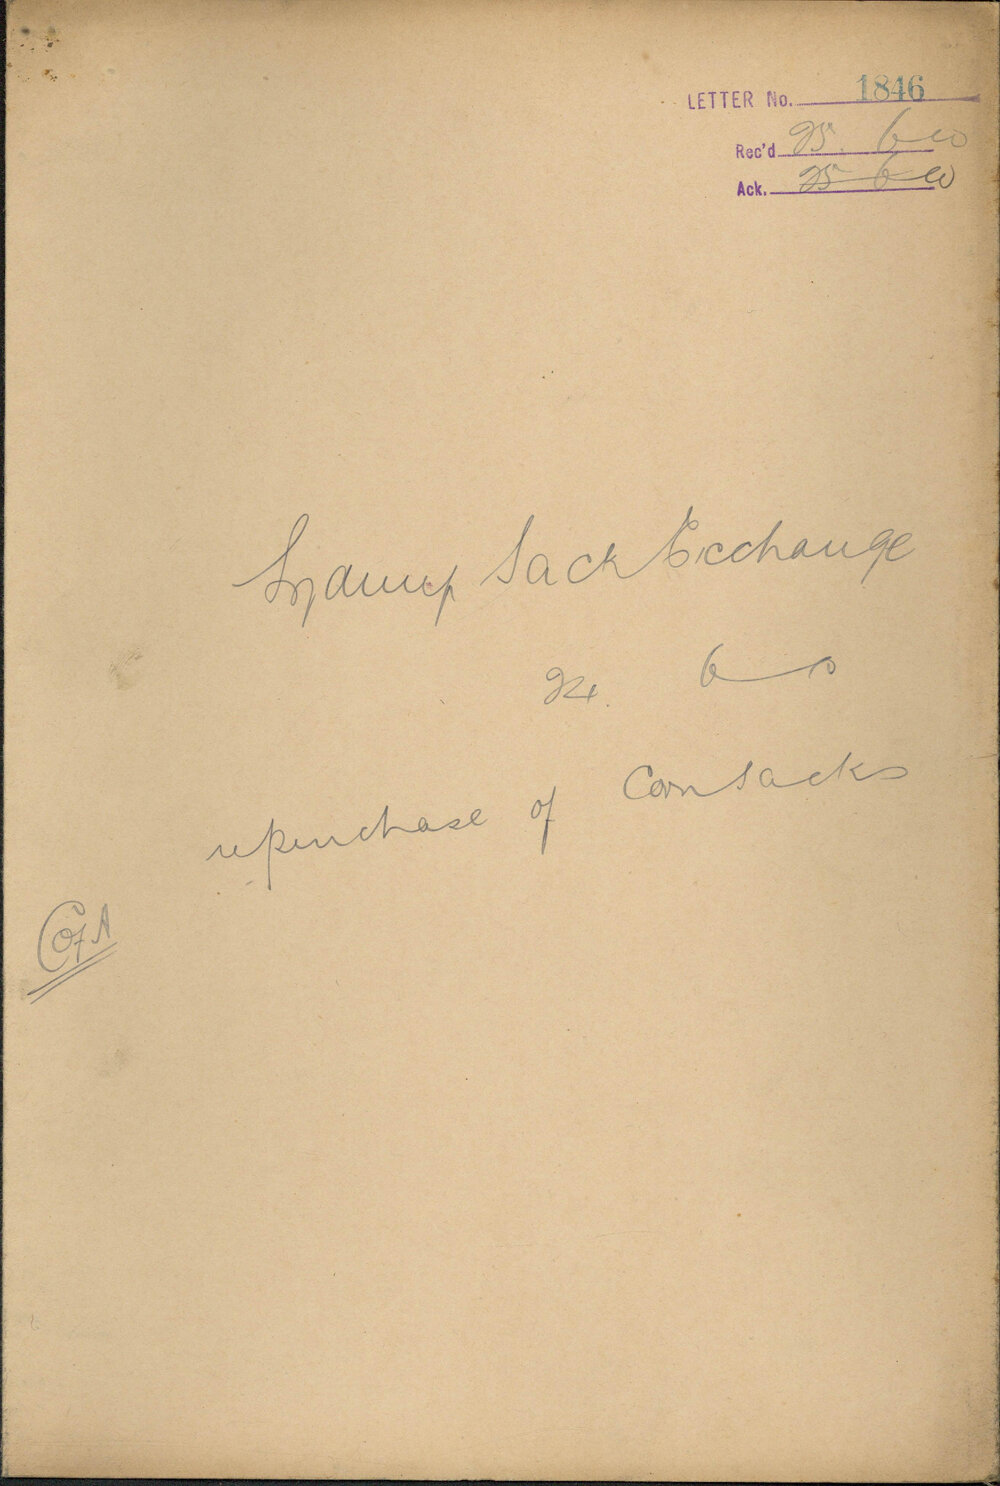 LETTER No. 1846
Rec'd 25. 6 00
Ack. 25 6 00
Sydney Sack Exchange
24. 6 0
repurchase of Cornsacks
C of A